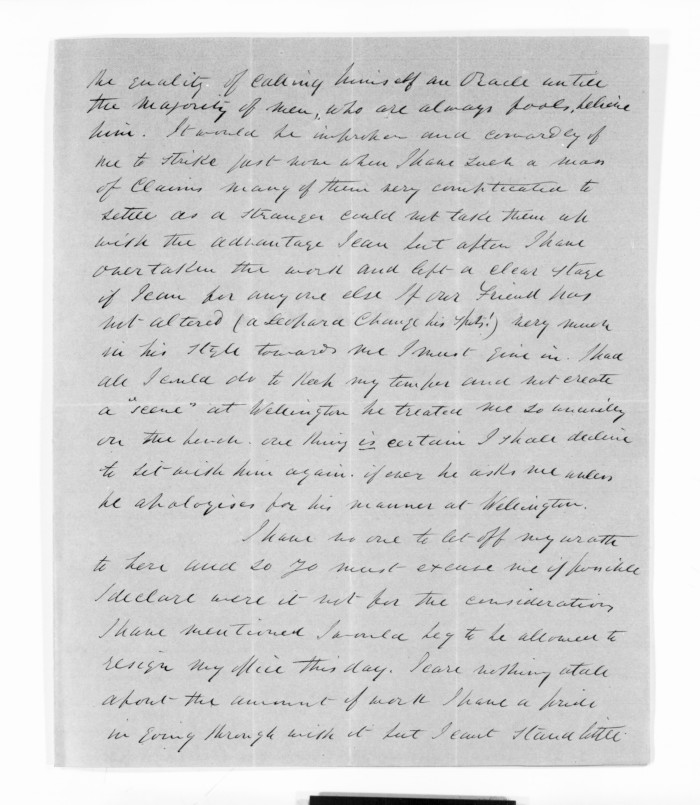 the quality of calling himself an Oracle until
the Majority of men, who are always fools, believe
him. It would be improper and cowardly of
me to strike just now when I have such a mass
of Claims many of them very complicated to
settle as a stranger could not take them up
with the advantage I can but after I have
overtaken the work and left a clear stage
if I can for anyone else If our Friend has
not altered (a Leopard Change his Spots!) very much
in his style towards me I must give in. I had
all I could do to keep my temper and not create
a "scene" at Wellington he treated me so uncivilly
on the bench. one thing is certain I shall decline
to sit with him again. if ever he asks me unless
he apologises for his manner at Wellington.
I have no one to let off my wrath
to here and so Yo must excuse me if possible
I declare were it not for the considerations
I have mentioned I would beg to be allowed to
resign my office this day. I care nothing at all
about the amount of work I have a pride
in going through with it but I cant stand little